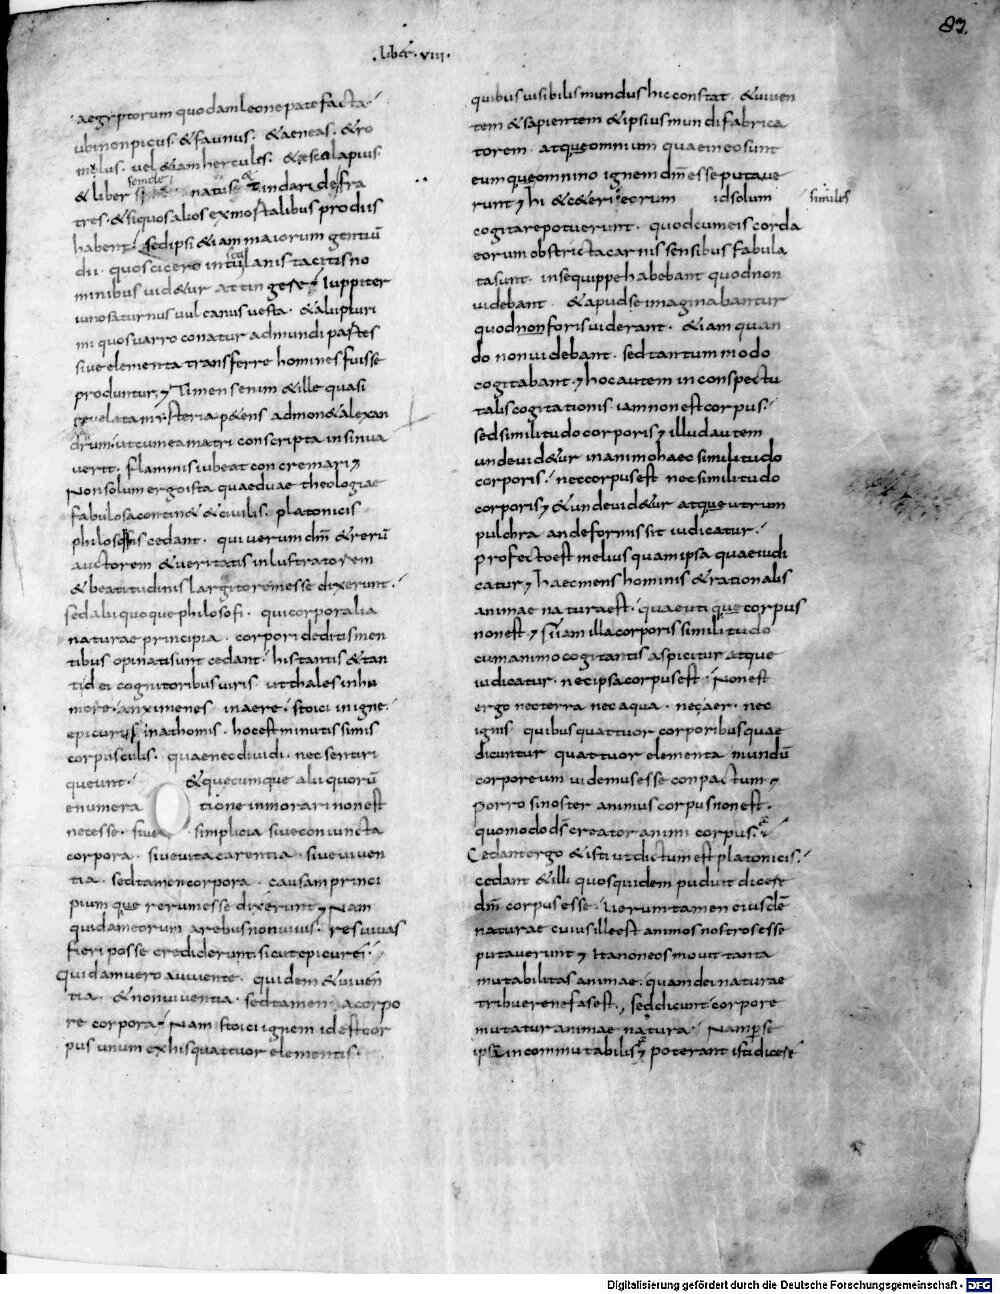 83.
.liber. VIII.
aegyptorum quodam leone patefacta
ubi non picus. & faunus. & aeneas. & ro
mulus. uel &iam hercules. & aescolapius.
& liber semele natus. & Tindaridę fra
tres. & siquos alios ex mortalibus pro diis
habent. sed ipsi &iam maiorum gentiū
dii. quos cicero in tusculanis tacitis no
minibus uid&ur attingere. Iuppiter
iuno saturnus uulcanus uesta. & alii plurimi
mi quos uarro conatur ad mundi partes
siue elementa transferre homines fuisse
produntur. Timens enim & ille quasi
reuelata mysteria p&ens admon& alexan
drum. ut cum ea matri conscripta insinua
uerit. flammis iubeat concremari.
Non solum ergo ista quae duae theologiae
fabulosa contin& & ciuilis. platonicis
philosophis cedant. qui uerum dm̄ & rerū
auctorem & ueritatis inlustratorem
& beatitudinis largitorem esse dixerunt.
sed alii quoque philosofi. qui corporalia
naturae principia. corpori deditis men
tibus opinati sunt cedant. his tantis & tan
ti dei cognitoribus uiris. ut thales in hu
more. anximenes in aere. stoici in igne.
epicurus in athomis. hoc est minutissimis
corpusculis. quae nec diuidi. nec sentiri
queunt. & quicumque alii quorū
enumeratione inmorari non est
necesse. siue simplicia siue coniuncta
corpora. siue uita carentia. siue uiuen
tia. sed tamen corpora. causam princi
pium que rerum esse dixerunt. Nam
quidam eorum a rebus non uiuis. res uiuas
fieri posse crediderunt. sicut epicurei.
Quidam uero a uiuente. quidem & uiuen
tia. & non uiuentia. sed tamen a corpo
re corpora. Nam stoici ignem id est cor
pus unum ex his quattuor elementis.
quibus uisibilis mundus hic constat. & uiuen
tem & sapientem & ipsius mundi fabrica
torem. atque omnium quae in eo sunt
eum que omnino ignem dm̄ esse putaue
runt. hi & c&eri eorum id solum
similes
cogitare potuerunt. quod cum eis corda
eorum obstricta carnis sensibus fabula
ta sunt. in se quippe habebant quod non
uidebant. & apud se imaginabantur
quod non foris uiderant. &iam quan
do non uidebant. sed tantum modo
cogitabant. hoc autem in conspectu
talis cogitationis. iam non est corpus.
sed similitudo corporis. illud autem
unde uid&ur in animo haec similitudo
corporis. nec corpus est nec similitudo
corporis. & unde uid&ur atque utrum
pulchra an deformis sit iudicatur.
profecto est melius quam ipsa quae iudi
catur. haec mens hominis & rationalis
animae natura est. quae utique corpus
non est. si iam illa corporis similitudo
cum animo cogitantis aspicitur atque
iudicatur. nec ipsa corpus est. Non est
ergo nec terra nec aqua. nec aer. nec
ignis quibus quattuor corporibus quae
dicuntur quattuor elementa mundū
corporeum uidemus esse conpactum.
Porro si noster animus corpus non est.
quomodo ds̄ creator animi corpus.
Cedant ergo & isti ut dictum est platonicis.
cedant & illi quos quidem puduit dicere
dm̄ corpus esse. Uerum tamen eiusdē
naturae cuius ille est animos nostros esse
putauerunt. Ita non eos mouit tanta
mutabilitas animae. quam dei naturae
tribuere nefas est. sed dicunt. corpore
mutatur animae natura. Nam per se
ipsa incommutabilis. poterant isti dicere
Digitalisierung gefördert durch die Deutsche Forschungsgemeinschaft - DFG